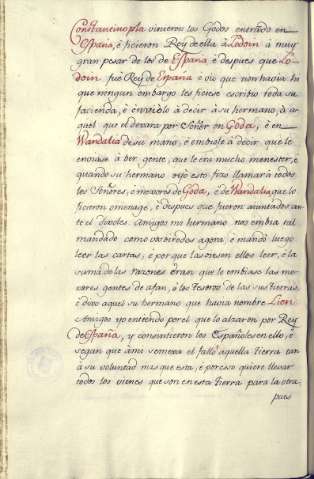 Constantinopla vinieron los Godos entrado en
España, é ficieron Rey de ella à Lodoin à muy
gran pesar de los de España, é despues que Lo-
doin fué Rey de España é vio que non havia in
que ningun embargo les ficiese escrito toda su
facienda, é envioló à decir à su hermano, à
aquel que el dexara por Señor en Goda, é en
Wandalia de su mano, é embiole à decir que le
enviase à bir gente, que le era mucho menester, é
quando su hermano oyó esto fizo llamar à todos
los Señores, é mayores de Goda, é de Wandalia que lo
ficieron omenage, é despues que fueron aiuntados an-
te el dixoles Amigos mi hermano nos embia tal
mandado como vos oiredes agora, é mandó luego
leer las cartas, é por que las oiesen ellos leer, é la
suma de las razones eran que le embiase las me-
yores gentes de afan, é los tesoros de las sus tierras
é dixo aquel su hermano que havia nombre Lion
Amigos yo entendo por el que lo alzaron por Rey
de España, y consintieron los Españoles en ello, é
segun que à mi semexa el falló aquella tierra tan
à su voluntad mas que esta, é por eso quiere llevar
todos los vienes que son en esta tierra para la otra
pues